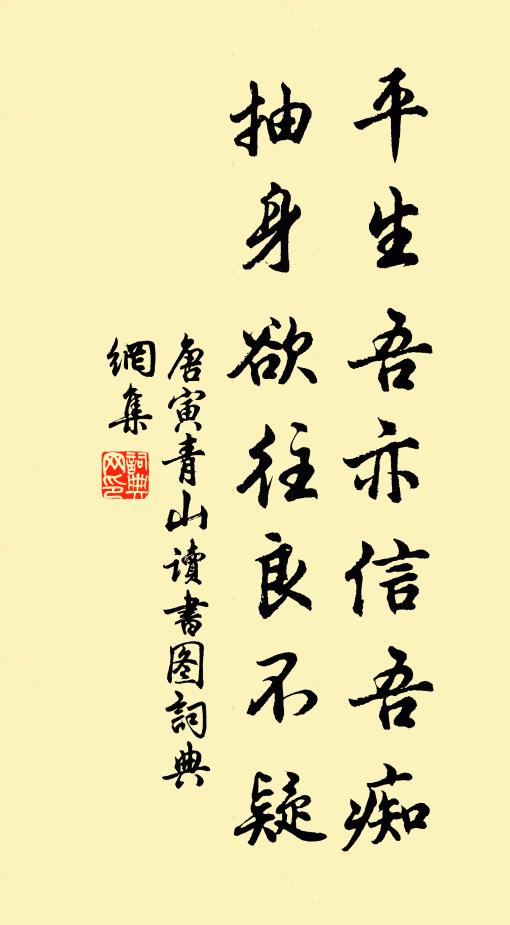 平生吾亦信吾痴
抽身欲往良不疑
唐寅青山读書图詞典
網集
詞典
网